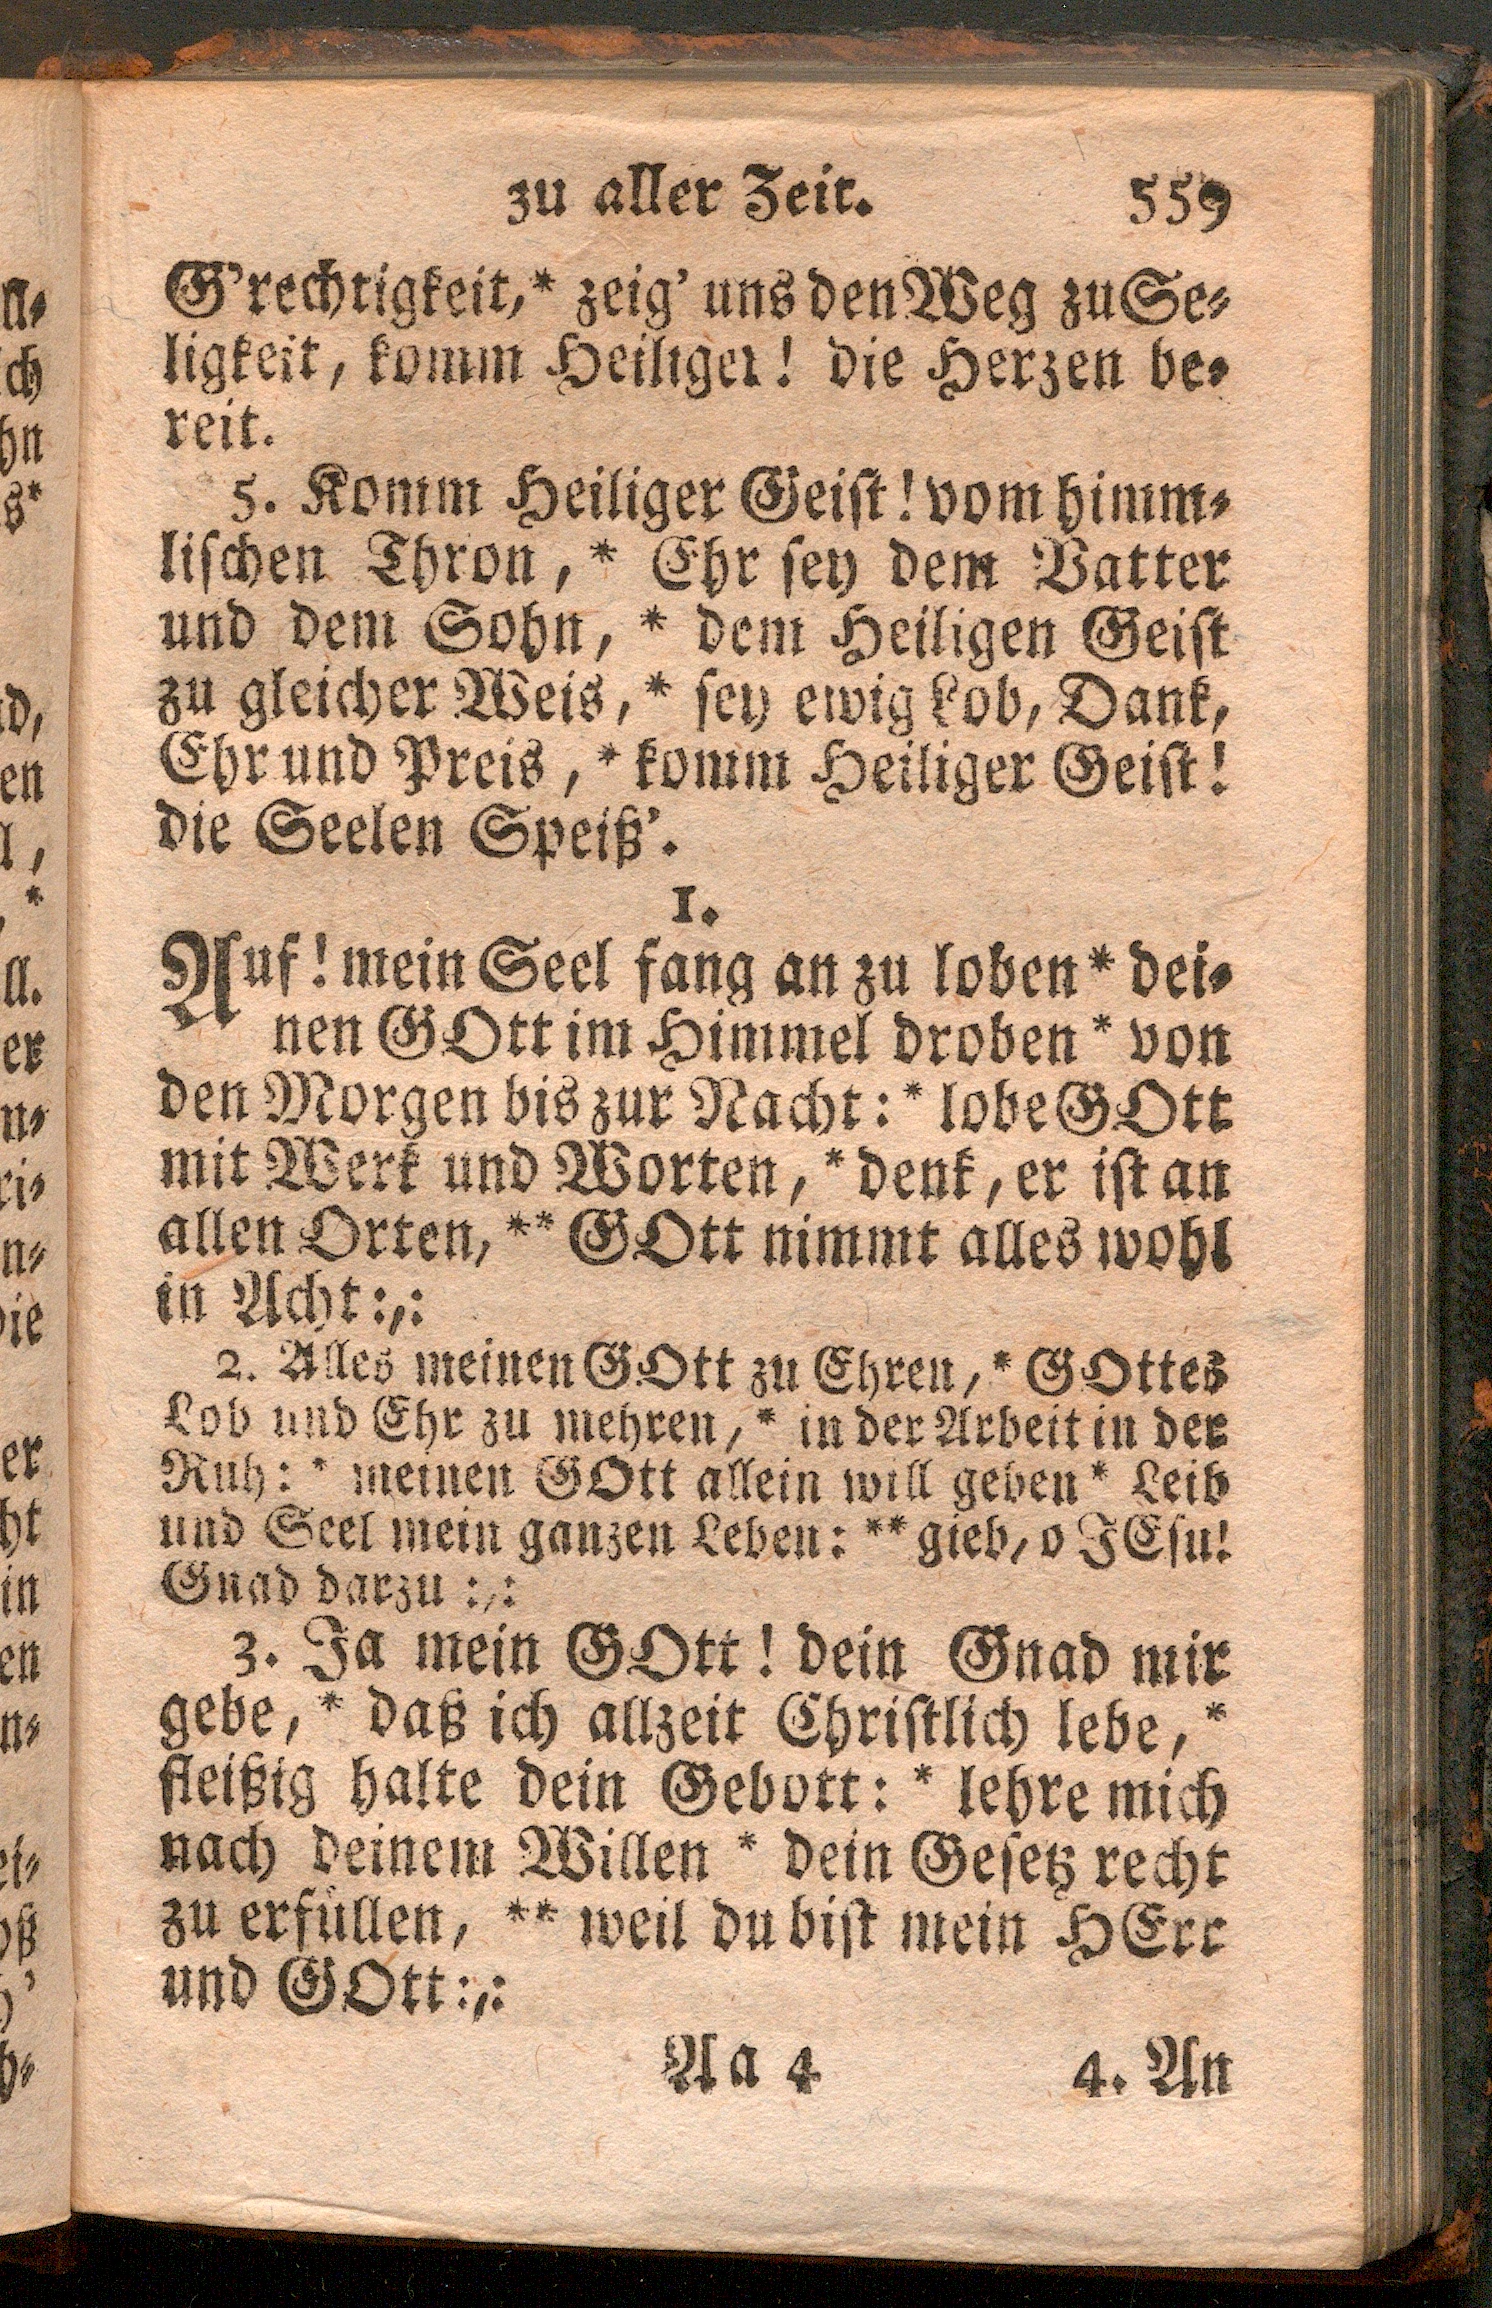 zu aller Zeit. 559
G'rechtigkeit,* zeig' uns den Weg zu Se-
ligkeit, komm Heiliger! die Herzen be-
reit.
5. Komm Heiliger Geist! vom himm-
lischen Thron,* Ehr sey dem Vatter
und dem Sohn, * dem Heiligen Geist
zu gleicher Weis,* sey ewig Lob, Dank,
Ehr und Preis,* komm Heiliger Geist!
die Seelen Speiß'.
1.
Auf! mein Seel fang an zu loben* dei-
nen GOtt im Himmel droben* von
den Morgen bis zur Nacht:* lobe GOtt
mit Werk und Worten,* denk, er ist an
allen Orten,** GOtt nimmt alles wohl
in Acht:,:
2. Alles meinen GOtt zu Ehren,* GOttes
Lob und Ehr zu mehren,* in der Arbeit in der
Ruh:* meinen GOtt allein will geben* Leib
und Seel mein ganzen Leben:** gieb, o JEsu!
Gnad darzu:,:
3. Ja mein GOtt! dein Gnad mir
gebe,* daß ich allzeit Christlich lebe,*
fleißig halte dein Gebott:* lehre mich
nach deinem Willen * dein Gesetz recht
zu erfüllen, ** weil du bist mein HErr
und GOtt:,:
Aa 4 4. An